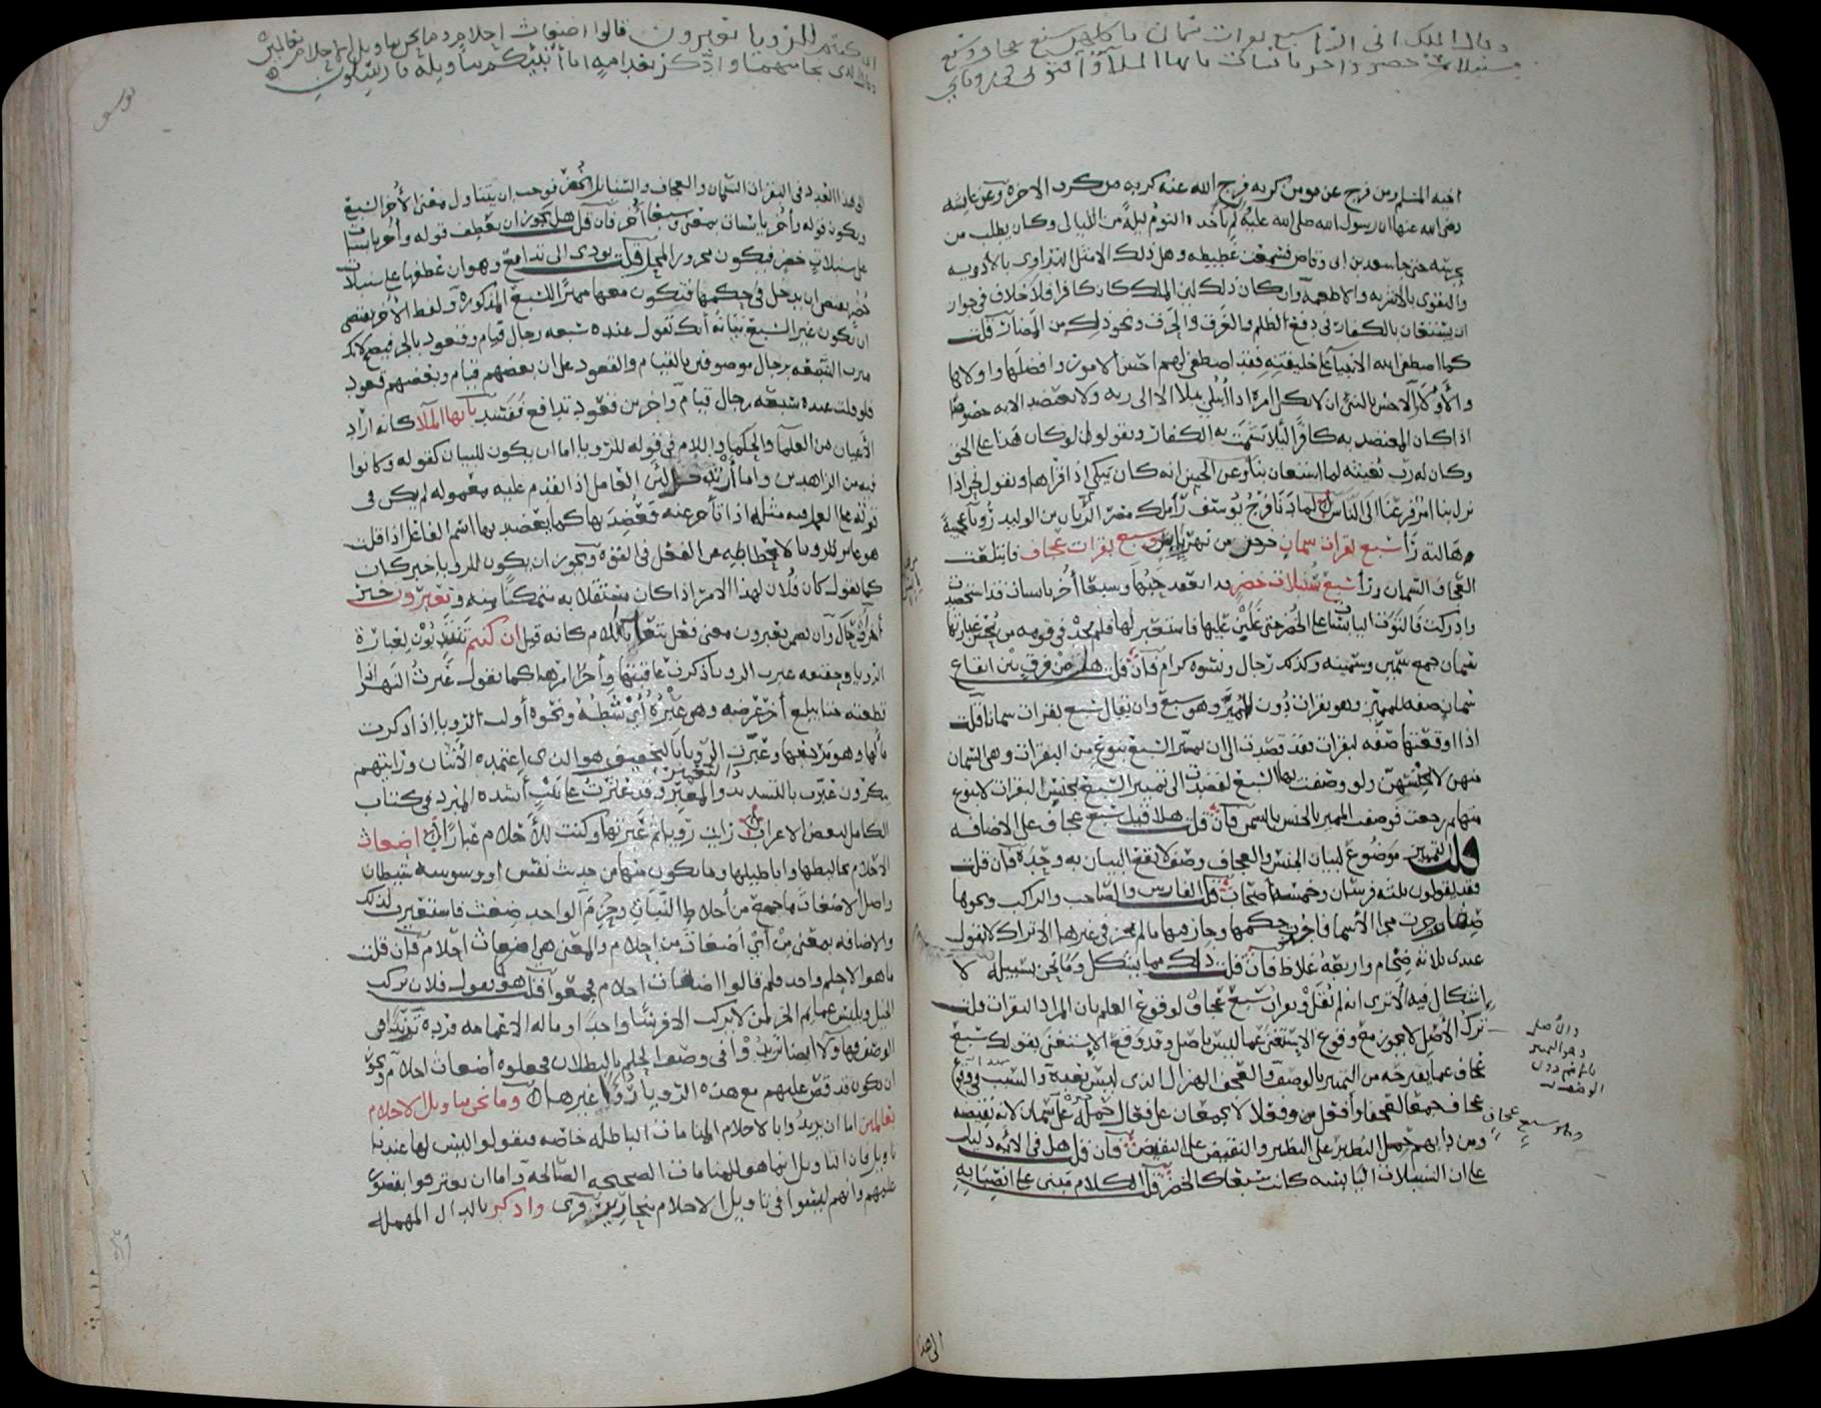 وقال الملك اني ارى سبع بقرات سمان ياكلهن سبع عجاف وسبع
سنبلات خضر واخر يابسات يا ايها الملا افتوني في روياي
اخيه المسلم ومن فرج عن مومن كربه فرج الله عنه كربه من كرب الاخرة وعن عايشه
رضي الله عنها ان رسول الله صلى الله عليه لم ياخذه النوم ليلة من الليالي وكان يطلب من
يحرسه حتى جا سعد بن ابي وقاص فسمعت غطيطه وهل ذلك الا مثل التداوي بالادويه
والتقوى بالاشربه والاطعمة وان كان ذلك لان الملك كان كافرا فلا خلاف في جواز
ان يستعان بالكفار في دفع الظلم والغرق والحرق ونحو ذلك من المضار قلت
كما اصطفى الله الانبيا على خليقته فقد اصطفى لهم احسن الامور وافضلها واولاها
والاولى الاحسن بالنبي ان لا يكل امره اذا ابتلي ببلا الا الى ربه ولا يعتضد الا به خصوصا
اذا كان المعتضد به كافرا ليلا يشمت به الكفار ويقولوا لو كان هذا على الحق
وكان له رب يغيثه لما استعان بنا وعن الحسن انه كان يبكي اذا قراها ويقول نحن اذا
نزل بنا امر فزعنا الى الناس لما دنا فرج يوسف راى ملك مصر الريان بن الوليد رويا عجيبة
هالته راى سبع بقرات سمان خرجن من نهر يابس وسبع بقرات عجاف فابتلعت
العجاف السمان وراى سبع سنبلات خضر قد انعقد حبها وسبعا اخر يابسات قد استحصدت
وادركت فالتوت اليابسات على الخضر حتى غلبن عليها فاستعبرها فلم يجد في قومه من يحسن عبارتها
سمان جمع سمين وسمينه وكذلك رجال ونسوه كرام فان قلت هل من فرق بين ايقاع
سمان صفه للمميز وهو بقرات دون المميز وهو سبع وان يقال سبع بقرات سمانا قلت
اذا اوقعتها صفه لبقرات فقد قصدت الى ان تميز السبع بنوع من البقرات وهي السمان
منهن لا بجنسهن ولو وصفت بها السبع لقصدت الى تمييز السبع بجنس البقرات لا بنوع
منها ثم رجعت فوصفت المميز بالجنس بالسمن فان قلت هلا قيل سبع عجاف على الاضافه
قلت التمييز موضوع لبيان الجنس والعجاف وصف لا يقع البيان به وحده فان قلت
فقد يقولون ثلثه فرسان وخمسة اصحاب قلت الفارس والصاحب والراكب ونحوها
صفات جرت مجرى الاسما فاخذت حكمها وجاز فيها ما لم يجز في غيرها الا تراك لا تقول
عندي ثلاثه ضخام واربعه غلاظ فان قلت ذلك مما يشكل وما نحن بسبيله لا
اشكال فيه الا ترى انه لم يقل وبقرات سبع عجاف لوقوع العلم بان المراد البقرات قلت
ترك الاصل لا يجوز مع وقوع الاستغنى عما ليس باصل وقد وقع الاستغنى بقولك سبع
عجاف عما تقترحه من التمييز بالوصف والعجف الهزال الذي ليس بعده والسبب في وقوع
عجاف جمعا لعجفا وافعل وفعلا لا يجمعان على فعال حمله على سمان لانه نقيضه
ومن دابهم حمل النظير على النظير والنقيض على النقيض فان قلت هل في الايه دليل
على ان السنبلات اليابسه كانت سبعا كالخضر قلت الكلام مبني على انصبابه
والاصل
وهو التمييز
عجاف
وهو سبع
الى هذا
ان كنتم للرويا تعبرون قالوا اضغاث احلام وما نحن بتاويل الاحلام بعالمين
وقال الذي نجا منهما وادكر بعد امة انا انبئكم بتاويله فارسلون
يوسف
الى هذا العدد في البقرات السمان والعجاف والسنابل الخضر فوجب ان يتناول معنى الاخر السبع
ويكون قوله واخر يابسات بمعنى وسبعا اخر فان قلت هل يجوز ان يعطف قوله واخر يابسات
على سنبلات خضر فيكون مجرور المحل قلت يودي الى تدافع وهو ان عطفها على سنبلات
خضر يقتضي ان يدخل في حكمها فتكون معها مميزا للسبع المذكورة ولفظ الاخر يقتضي
ان تكون غير السبع بيانه انك تقول عنده سبعه رجال قيام وقعود بالجر فيصح لانك
ميزت السبعه برجال موصوفين بالقيام والقعود على ان بعضهم قيام وبعضهم قعود
فلو قلت عنده سبعه رجال قيام واخرين قعود تدافع ففسد يا ايها الملا كانه اراد
الاعيان من العلما والحكما واللام في قوله للرويا اما ان يكون للبيان كقوله وكانوا
فيه من الزاهدين واما ان تدخل لان العامل اذا تقدم عليه معموله لم يكن في
قوته على العمل فيه مثله اذا تاخر عنه فعضد بها كما يعضد بها اسم الفاعل اذا قلت
هو عابر للرويا لانحطاطه عن الفعل في القوه ويجوز ان يكون للرويا خبر كان
كما تقول كان فلان لهذا الامر اذا كان مستقلا به متمكنا منه وتعبرون خبر
اخر او حال وان يضمن تعبرون معنى فعل يتعدى باللام كانه قيل ان كنتم تنتدبون لعبارة
الرويا وحقيقه عبرت الرويا ذكرت عاقبتها واخر امرها كما تقول عبرت النهر اذا
قطعته حتى تبلغ اخر عرضه وهو عبره اي شطه ونحوه اولت الرويا اذا ذكرت
مالها وهو مرجعها وعبرت الرويا بالتخفيف هو الذي اعتمده الاثبات ورايتهم
ينكرون عبرت بالتشديد والتعبير والمعبر وقد عثرت على بيت انشده المبرد في كتاب
الكامل لبعض الاعراب رايت رويا ثم عبرتها وكنت للاحلام عبارا اضغاث
الاحلام تخاليطها واباطيلها وما يكون منها من حديث نفس او وسوسه شيطان
واصل الاضغاث ما جمع من اخلاط النبات وحزم الواحد ضغث فاستعيرت لذلك
والاضافه بمعنى من اي اضغاث من احلام والمعنى هي اضغاث احلام فان قلت
ما هو الا حلم واحد فلم قالوا اضغاث احلام فجمعوا قلت هو كما تقول فلان يركب
الخيل ويلبس عمايم الخز لمن لا يركب الا فرسا واحدا وما له الا عمامه فرده تزيدا في
الوصف فهولا ايضا تزيدوا في وصف الحلم بالبطلان فجعلوه اضغاث احلام ويجوز
ان يكون قد قص عليهم مع هذه الرويا رويا غيرها وما نحن بتاويل الاحلام
بعالمين اما ان يريدوا بالاحلام المنامات الباطله خاصه فيقولوا ليس لها عندنا
تاويل فان التاويل انما هو للمنامات الصحيحه الصالحه واما ان يعترفوا بقصور
علمهم وانهم ليسوا في تاويل الاحلام بنحارير قرى وادكر بالدال المهمله